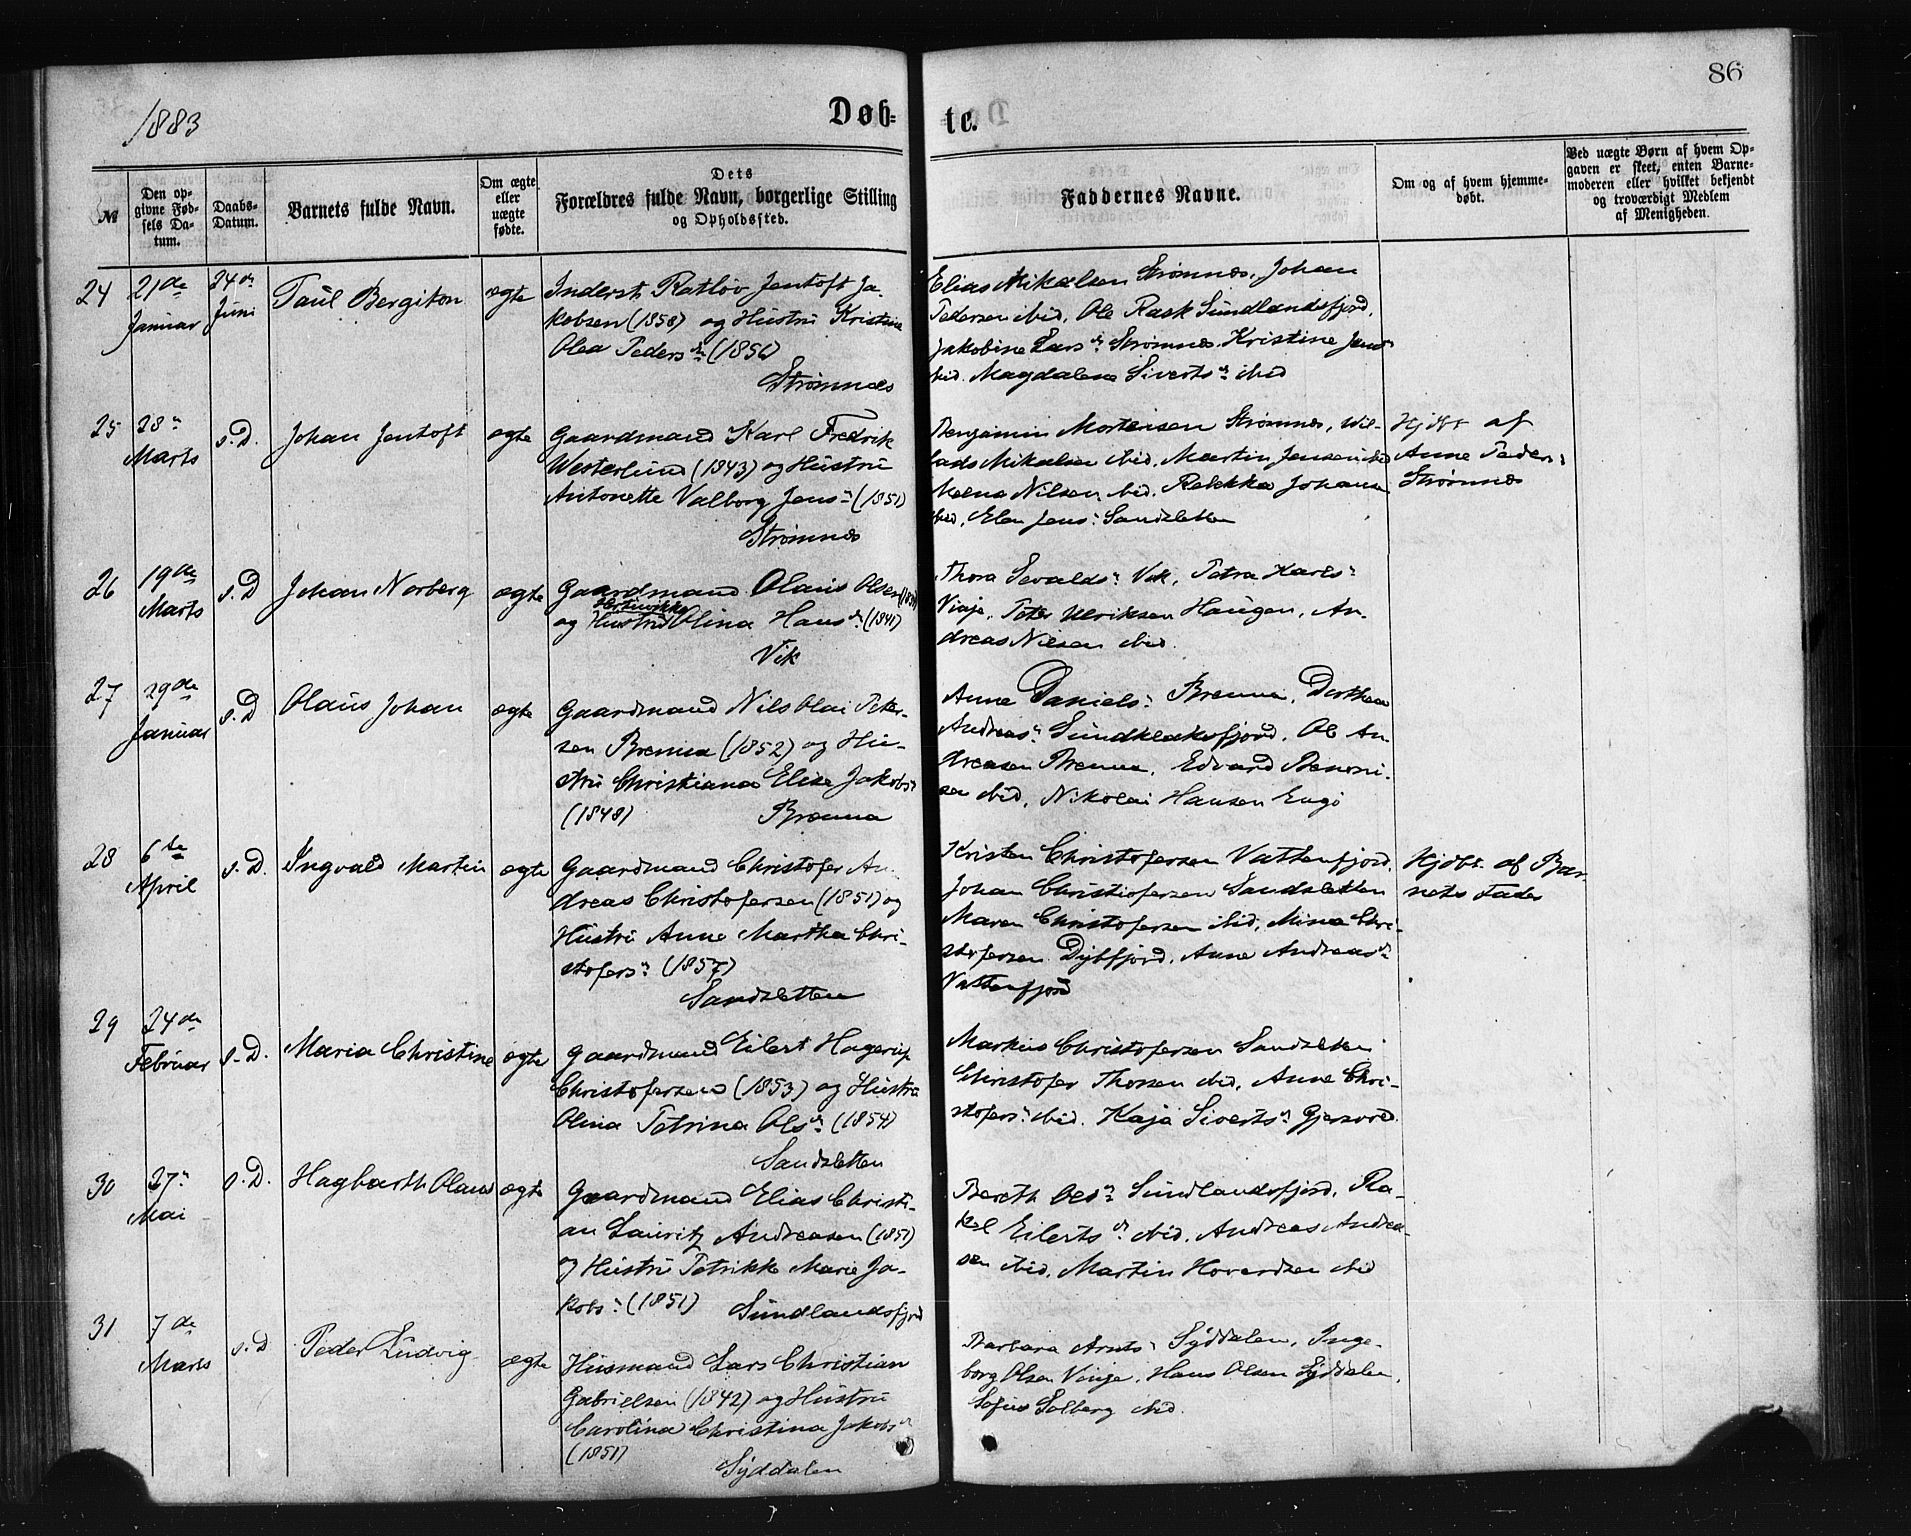 86
1883
Døb-
te.
№
Den op-
givne Fød-
sels Da-
tum.
Daabs-
Datum.
Barnets fulde Navn.
Om ægte
eller
uægte
fødte.
Dets
Forældres fulde Navn, borgerlige Stilling
og Opholdssted.
Faddernes Navne.
Om og af hvem hjemme-
døbt.
Ved uægte Børn af hvem Op-
gaven er skeet, enten Barne-
moderen eller hvilket bekjendt
og troværdigt Medlem
af Menigheden.
24
21de
Januar
24de
Juni
Paul Bergiton
ægte
Inderst Ratlov Jentoft Ja-
kobsen (1858) og Hustru Kristine
Olea Pedersdr (1856)
Strømnæs
Elias Mikalsen Strømnæs, Johan
Pedersen ibid, Ole Rask Sundlandsfjord,
Jakobine Larsdr Strømnæs. Kristine Jens
ibid. Magdalena Sivertsdr ibid
25
28n
Marts
s.D.
Johan Jentoft
ægte
Gaardmand Karl Fredrik
Westerlund (1843) og Hustru
Antonette Valborg Jens- (1851)
Strømnæs
Benjamin Mortensen Strømnæs, Wil-
lads Mikalsen ibid. Martin Jensen ibid
Nilsen ibid. Rekkka Johans
ibid, Elen Jens: Sandsletten
Hjdbt af
Anne Peders:
Strømnæs
26
19de
Marts
s.D
Johan Norberg
ægte
Gaardmand Olaus Olsen
og Hustru Olina Hansdr (1841)
Vik
Thora Sevalds: Vik, Petra Karls:
Vinje, Peter Ulriksen Haugen, An-
dreas Nilsen ibid.
27
29de
Januar
s.D
Olaus Johan
ægte
Gaardmand Nils Olai Peter-
sen Brenna (1852) og Hu-
stru Christiana Elise Jakobs:
(1848) Brenna
Anne Daniels: Brenna, Dorthea
Andreas: Sundklakfjord. Ole An-
dreasen Brenna, Edvard Benoni-
sen ibid, Nikolai Hansen Engø
28
6te
April
s.D.
Ingvald Martin
ægte
Gaardmand Christofer An-
dreas Christofersen (1851) og
Hustru Anne Martha Chri-
stofers: (1857)
Sandsletten
Kristen Christofersen Vattenfjord,
Johan Christofersen Sandsletten
Maren Christofersen ibid, Mina Chri-
stofersen Dybfjord, Anne Andreasdr
Vattenfjord
Hjdbt. af Bar-
nets Fader
29
24de
Februar
s.D.
Maria Christine
ægte
Gaardmand Eilert Hagerup
Christofersen (1853) og Hustru
Olina Petrina Olsdr (1854)
Sandsletten
Markus Christofersen Sandsletten
Christofer Thorsen ibid, Anne Chri-
stofers: ibid. Kaja Sivertsdr Gjersvold.
30
27n
Mai
s.D.
Hagbarth Olaus
ægte
Gaardmand Elias Christi-
an Lauritz Andreasen (1851)
og Hustru Petrikke Marie Ja-
kobs: (1851) Sundlandsfjord
Bereth Olsdr Sundlandsfjord, Ra-
kel Eilertsdr ibid. Andreas Andrea-
sen ibid, Martin Hovardsen ibid
31
7de
Marts
s.D
Peder Ludvig
ægte
Husmand Lars Christian
Gabrielsen (1842) og Hustru
Carolina Christina Jakobsdr
(1851)
Syddalen
Barbara Arnts: Syddalen, Inge-
borg Olsen Vinje, Hans Olsen Syddalen,
Sofus Solberg ibid.